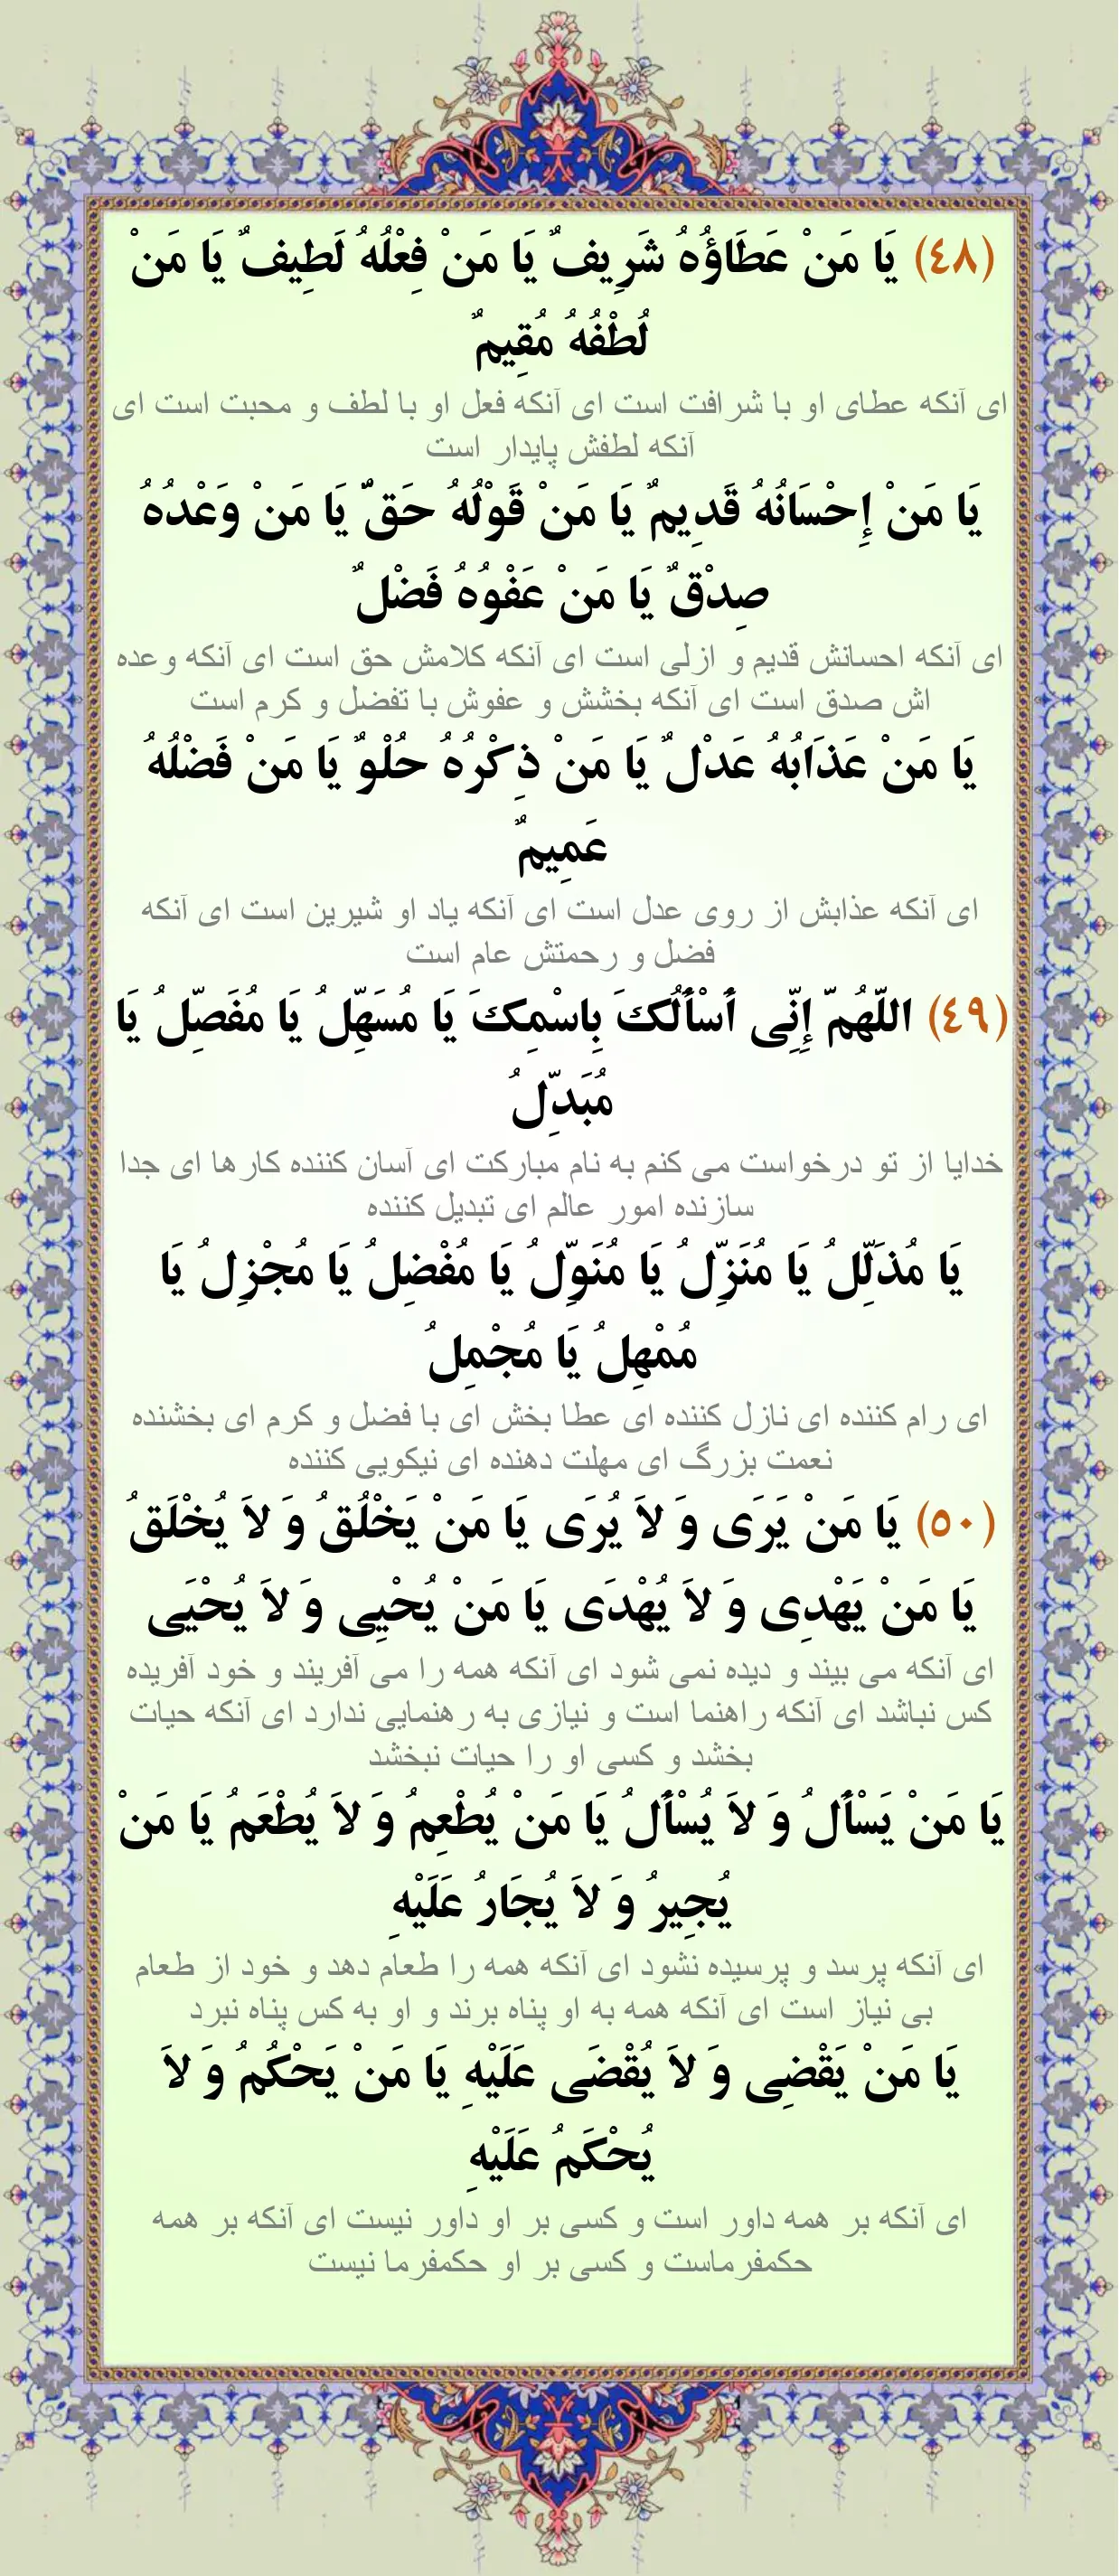 (٤٨) يَا مَنْ عَطَاؤُهُ شَرِيفٌ يَا مَنْ فِعْلُهُ لَطِيفٌ يَا مَنْ
لُطْفُهُ مُقِيمٌ
ای آنکه عطای او با شرافت است ای آنکه فعل او با لطف و محبت است ای
آنکه لطفش پایدار است
يَا مَنْ إِحْسَانُهُ قَدِيمٌ يَا مَنْ قَوْلُهُ حَقٌّ يَا مَنْ وَعْدُهُ
صِدْقٌ يَا مَنْ عَفْوُهُ فَضْلٌ
ای آنکه احسانش قدیم و ازلی است ای آنکه کلامش حق است ای آنکه وعده
اش صدق است ای آنکه بخشش و عفوش با تفضل و کرم است
يَا مَنْ عَذَابُهُ عَدْلٌ يَا مَنْ ذِكْرُهُ حُلْوٌ يَا مَنْ فَضْلُهُ
عَمِيمٌ
ای آنکه عذابش از روی عدل است ای آنکه یاد او شیرین است ای آنکه
فضل و رحمتش عام است
(٤٩) اللّهُمّ إِنِّی أَسْأَلُكَ بِاسْمِكَ يَا مُسَهِّلُ يَا مُفَصِّلُ يَا
مُبَدِّلُ
خدایا از تو درخواست می کنم به نام مبارکت ای آسان کننده کارها ای جدا
سازنده امور عالم ای تبدیل کننده
يَا مُذَلِّلُ يَا مُنَزِّلُ يَا مُنَوِّلُ يَا مُفْضِلُ يَا مُجْزِلُ يَا
مُمْهِلُ يَا مُجْمِلُ
ای رام کننده ای نازل کننده ای عطا بخش ای با فضل و کرم ای بخشنده
نعمت بزرگ ای مهلت دهنده ای نیکویی کننده
(٥٠) يَا مَنْ يَرَى وَ لاَ يُرَى يَا مَنْ يَخْلُقُ وَ لاَ يُخْلَقُ
يَا مَنْ يَهْدِی وَ لاَ يُهْدَى يَا مَنْ يُحْيِی وَ لاَ يُحْيَى
ای آنکه می بیند و دیده نمی شود ای آنکه همه را می آفریند و خود آفریده
کس نباشد ای آنکه راهنما است و نیازی به رهنمایی ندارد ای آنکه حیات
بخشد و کسی او را حیات نبخشد
يَا مَنْ يَسْأَلُ وَ لاَ يُسْأَلُ يَا مَنْ يُطْعِمُ وَ لاَ يُطْعَمُ يَا مَنْ
يُجِيرُ وَ لاَ يُجَارُ عَلَيْهِ
ای آنکه پرسد و پرسیده نشود ای آنکه همه را طعام دهد و خود از طعام
بی نیاز است ای آنکه همه به او پناه برند و او به کس پناه نبرد
يَا مَنْ يَقْضِی وَ لاَ يُقْضَى عَلَيْهِ يَا مَنْ يَحْكُمُ وَ لاَ
يُحْكَمُ عَلَيْهِ
ای آنکه بر همه داور است و کسی بر او داور نیست ای آنکه بر همه
حکمفرماست و کسی بر او حکمفرما نیست